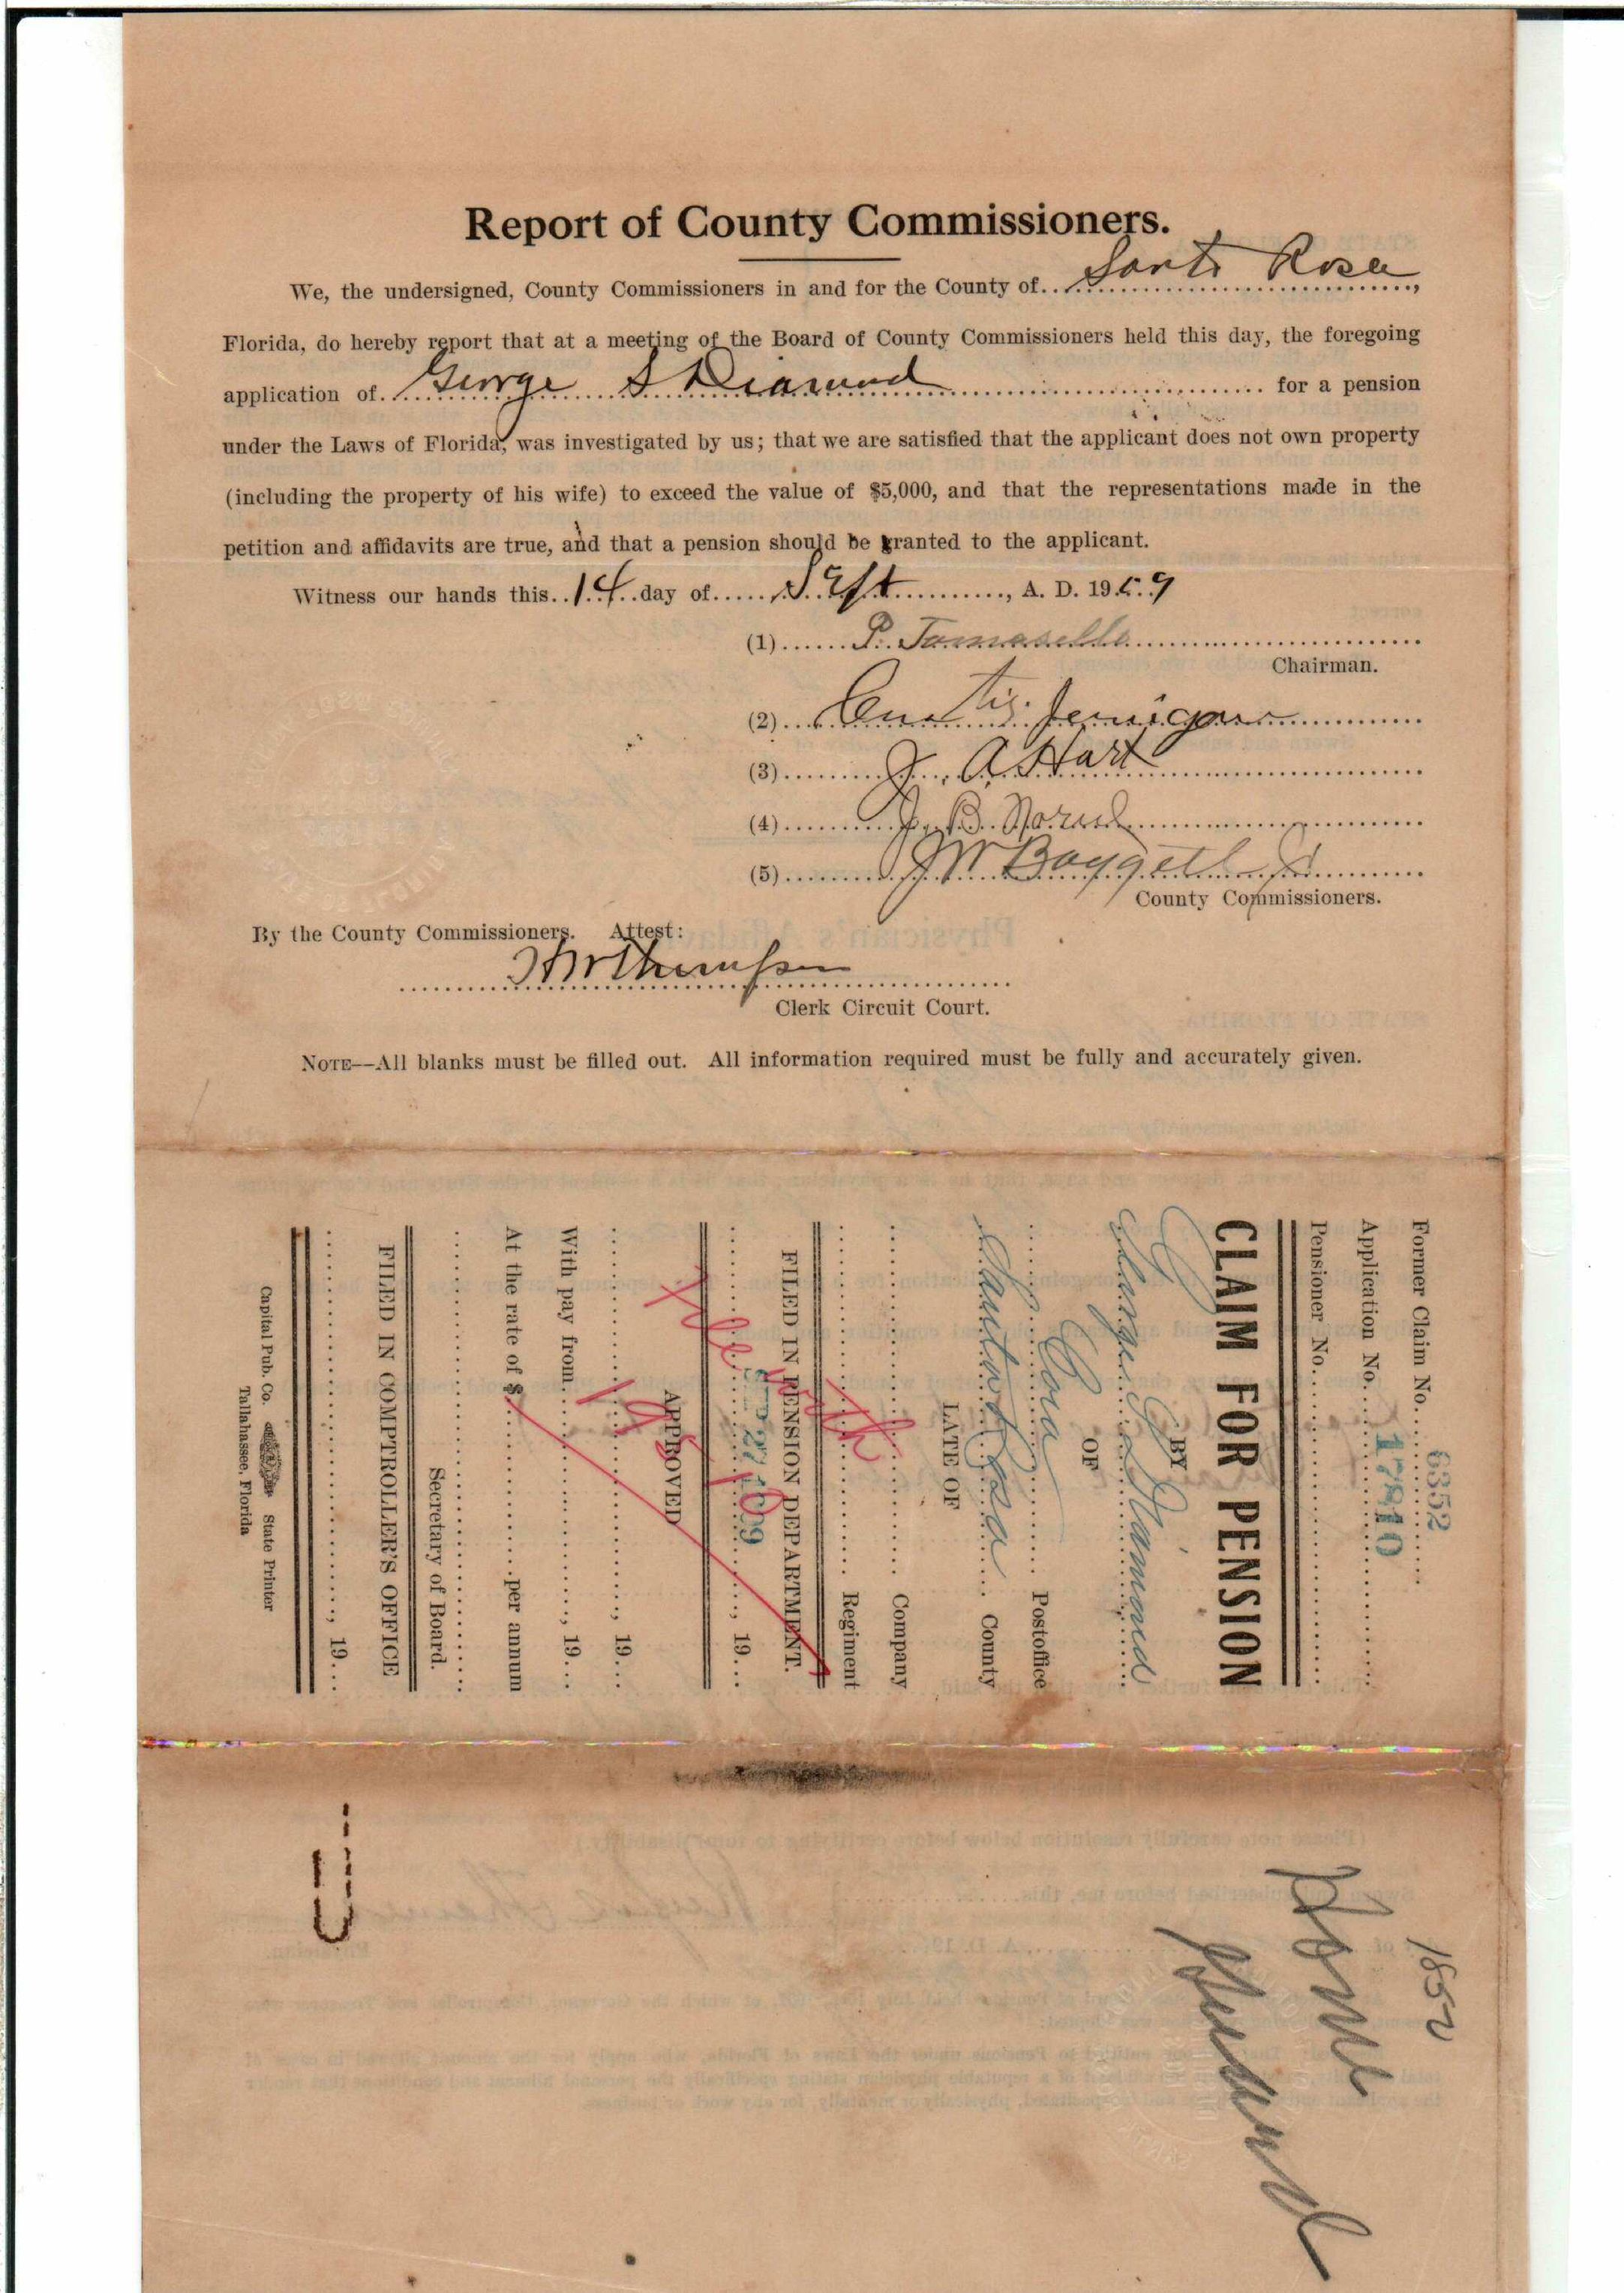 Report of County Commissioners.
We, the undersigned, County Commissioners in and for the County of Santa Rosa,
Florida, do hereby report that at a meeting of the Board of County Commissioners held this day, the foregoing
application of George S Diamond for a pension
under the Laws of Florida, was investigated by us; that we are satisfied that the applicant does not own property
(including the property of his wife) to exceed the value of $5,000, and that the representations made in the
petition and affidavits are true, and that a pension should be granted to the applicant.
Witness our hands this 14 day of Sept, A. D. 1909
(1) P. Tomasello
Chairman.
(2) Jernigan
(3) J. A Hart
(4) J. B.
(5) J W Baggett
County Commissioners.
By the County Commissioners. Attest:
H W Thompson
Clerk Circuit Court.
NOTE—All blanks must be filled out. All information required must be fully and accurately given.
Former Claim No. 6352
Application No. 17810
Pensioner No.
CLAIM FOR PENSION
BY
George S Diamond
OF
Cora Postoffice
Santa Rosa County
LATE OF
Company
Regiment
FILED IN PENSION DEPARTMENT.
SEP 27 1909, 19
APPROVED
, 19
With pay from , 19
At the rate of $ per annum
Secretary of Board.
FILED IN COMPTROLLER'S OFFICE
, 19
Capital Pub. Co. State Printer
Tallahassee, Florida
File with
1852